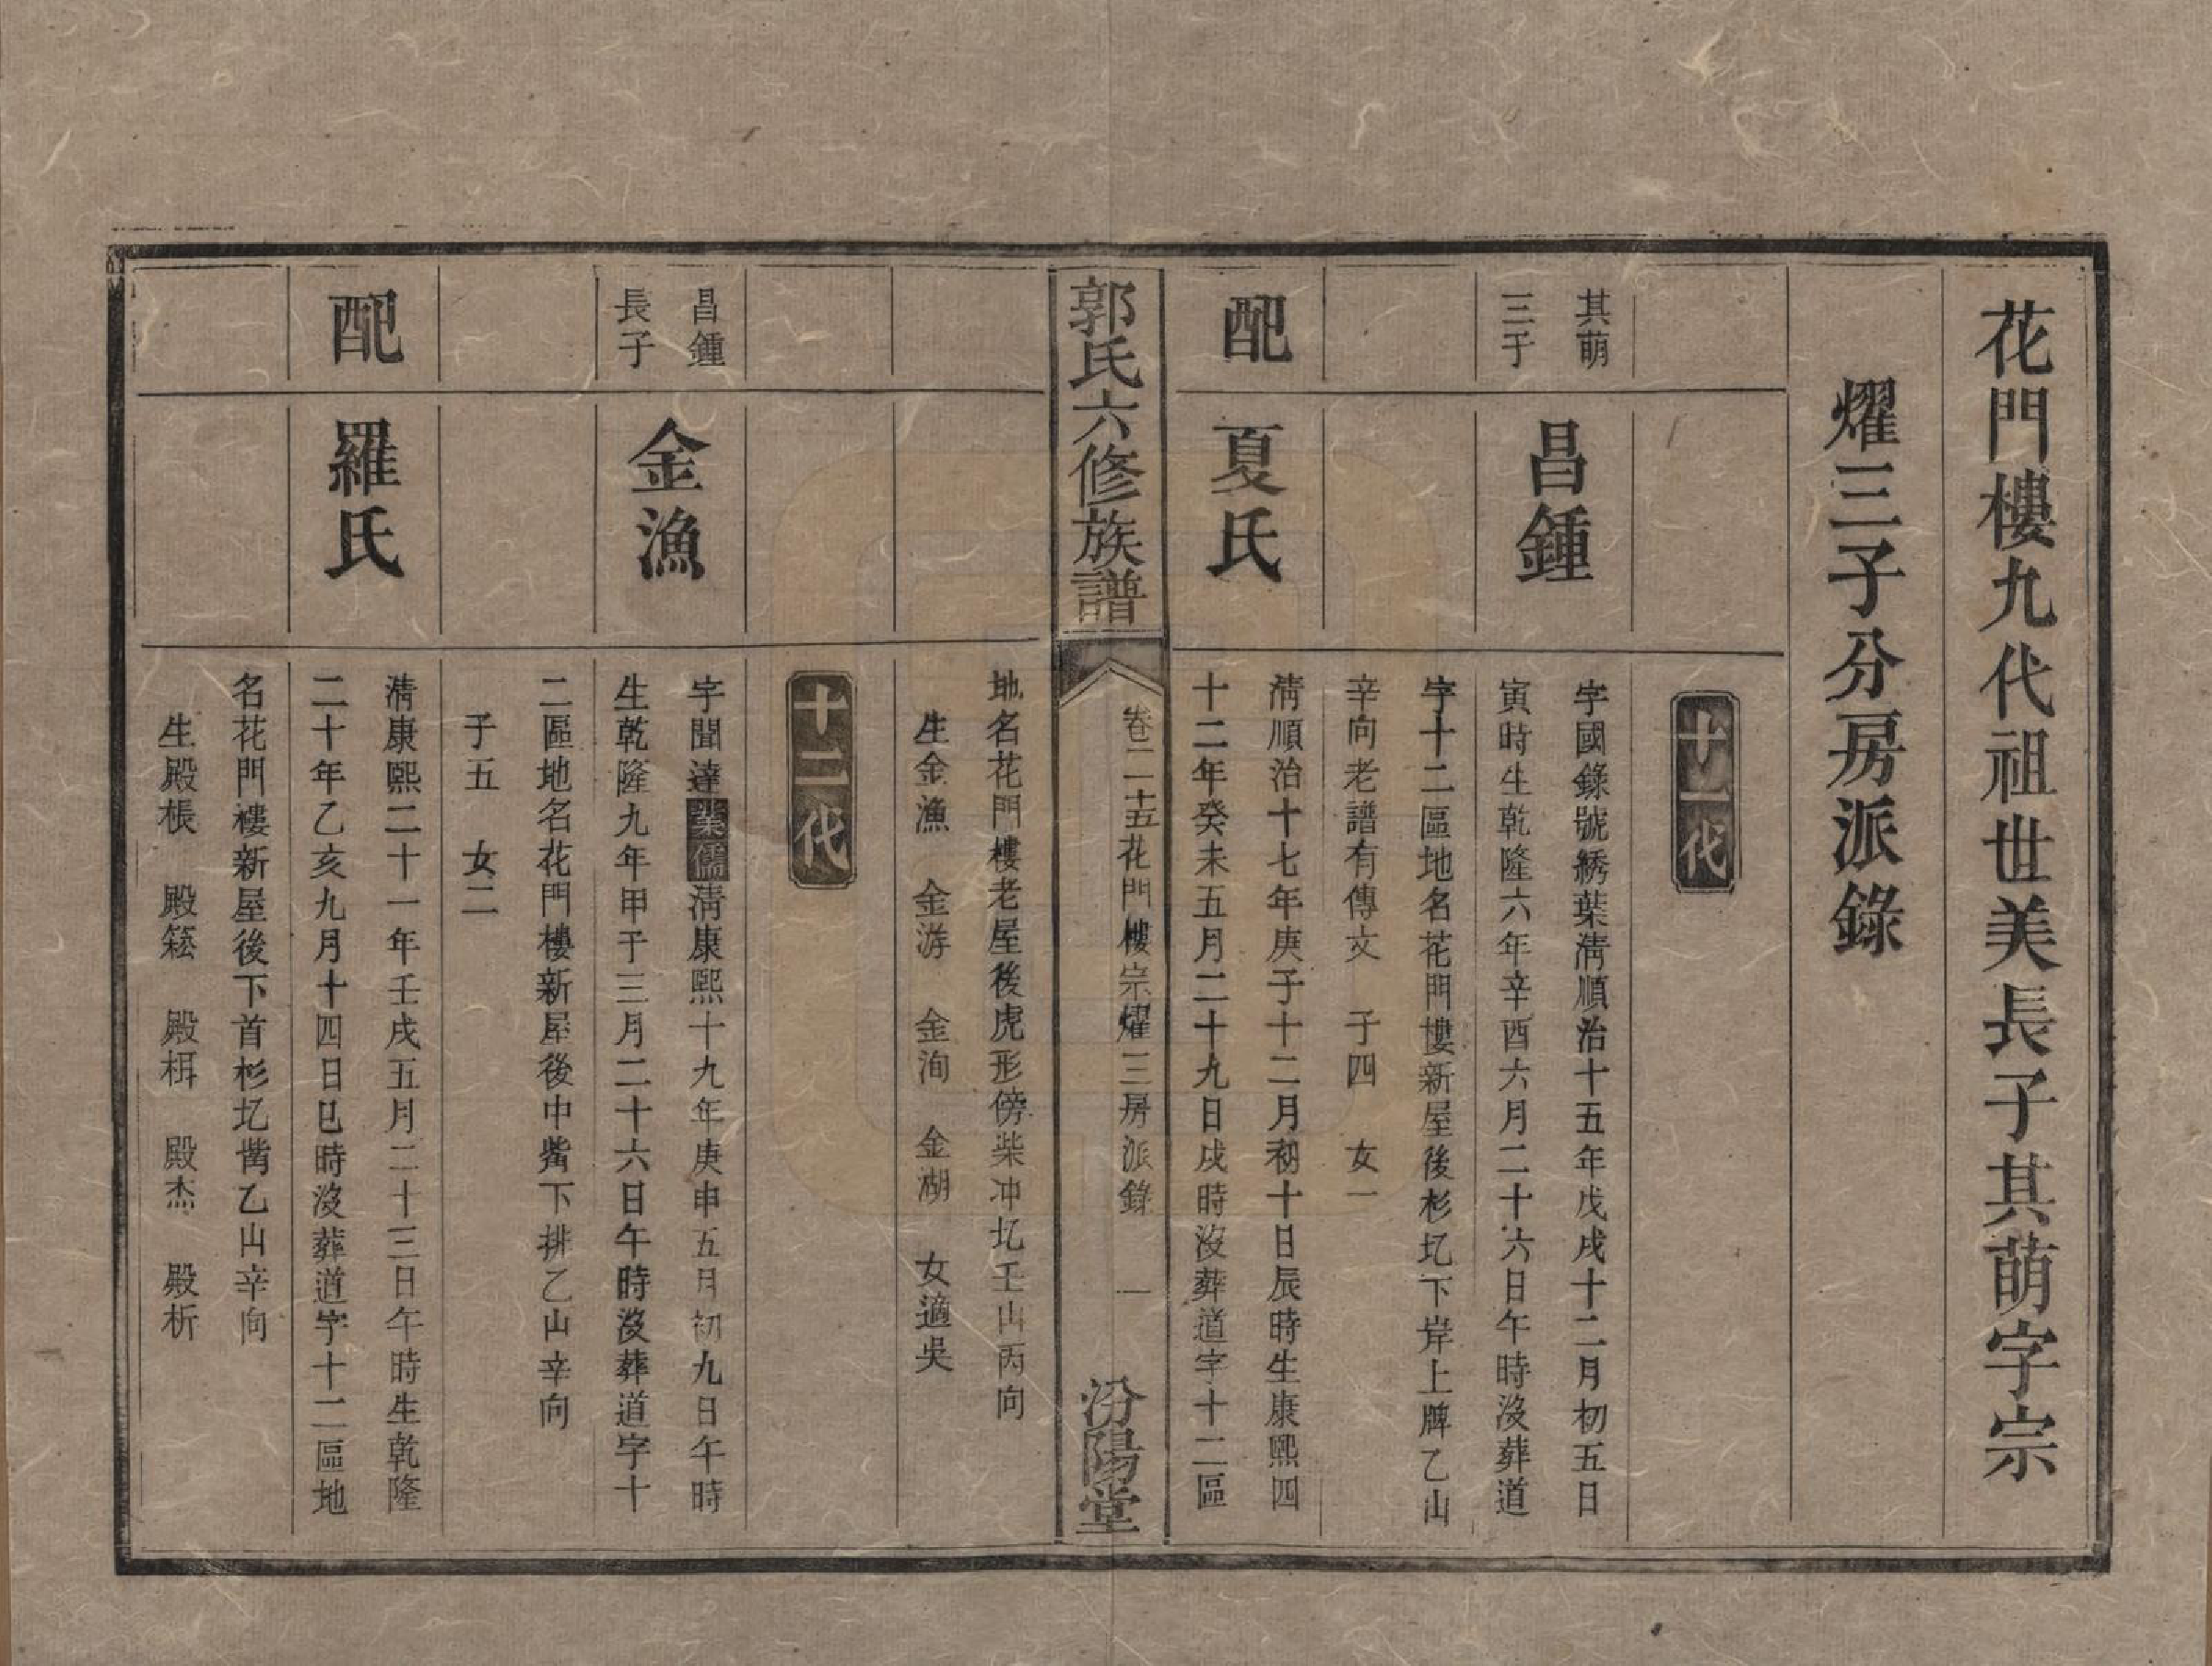 花門樓九代祖世美長子其萌字宗
燿三子分房派錄
十一代
其萌
三子
昌鍾
字國錄號綉葉清順治十五年戊戌十二月初五日
寅時生乾隆六年辛酉六月二十六日午時沒葬道
字十二區地名花門樓新屋後杉圪下岸上牌乙山
辛向老譜有傳文　子四　女一
配
夏氏
清順治十七年庚子十二月初十日辰時生康熙四
十二年癸未五月二十九日戌時沒葬道字十二區
郭氏六修族譜
卷二十五花門樓宗燿三房派錄
一
汾陽堂
地名花門樓老屋後虎形傍柴冲圪壬山丙向
生金漁　金游　金洵　金湖　女適吳
十二代
昌鍾
長子
金漁
字聞達業儒清康熙十九年庚申五月初九日午時
生乾隆九年甲子三月二十六日午時沒葬道字十
二區地名花門樓新屋後中嘴下排乙山辛向
子五　女二
配
羅氏
清康熙二十一年壬戌五月二十三日午時生乾隆
二十年乙亥九月十四日巳時沒葬道字十二區地
名花門樓新屋後下首杉圪嘴乙山辛向
生殿棖　殿　殿栮　殿杰　殿析